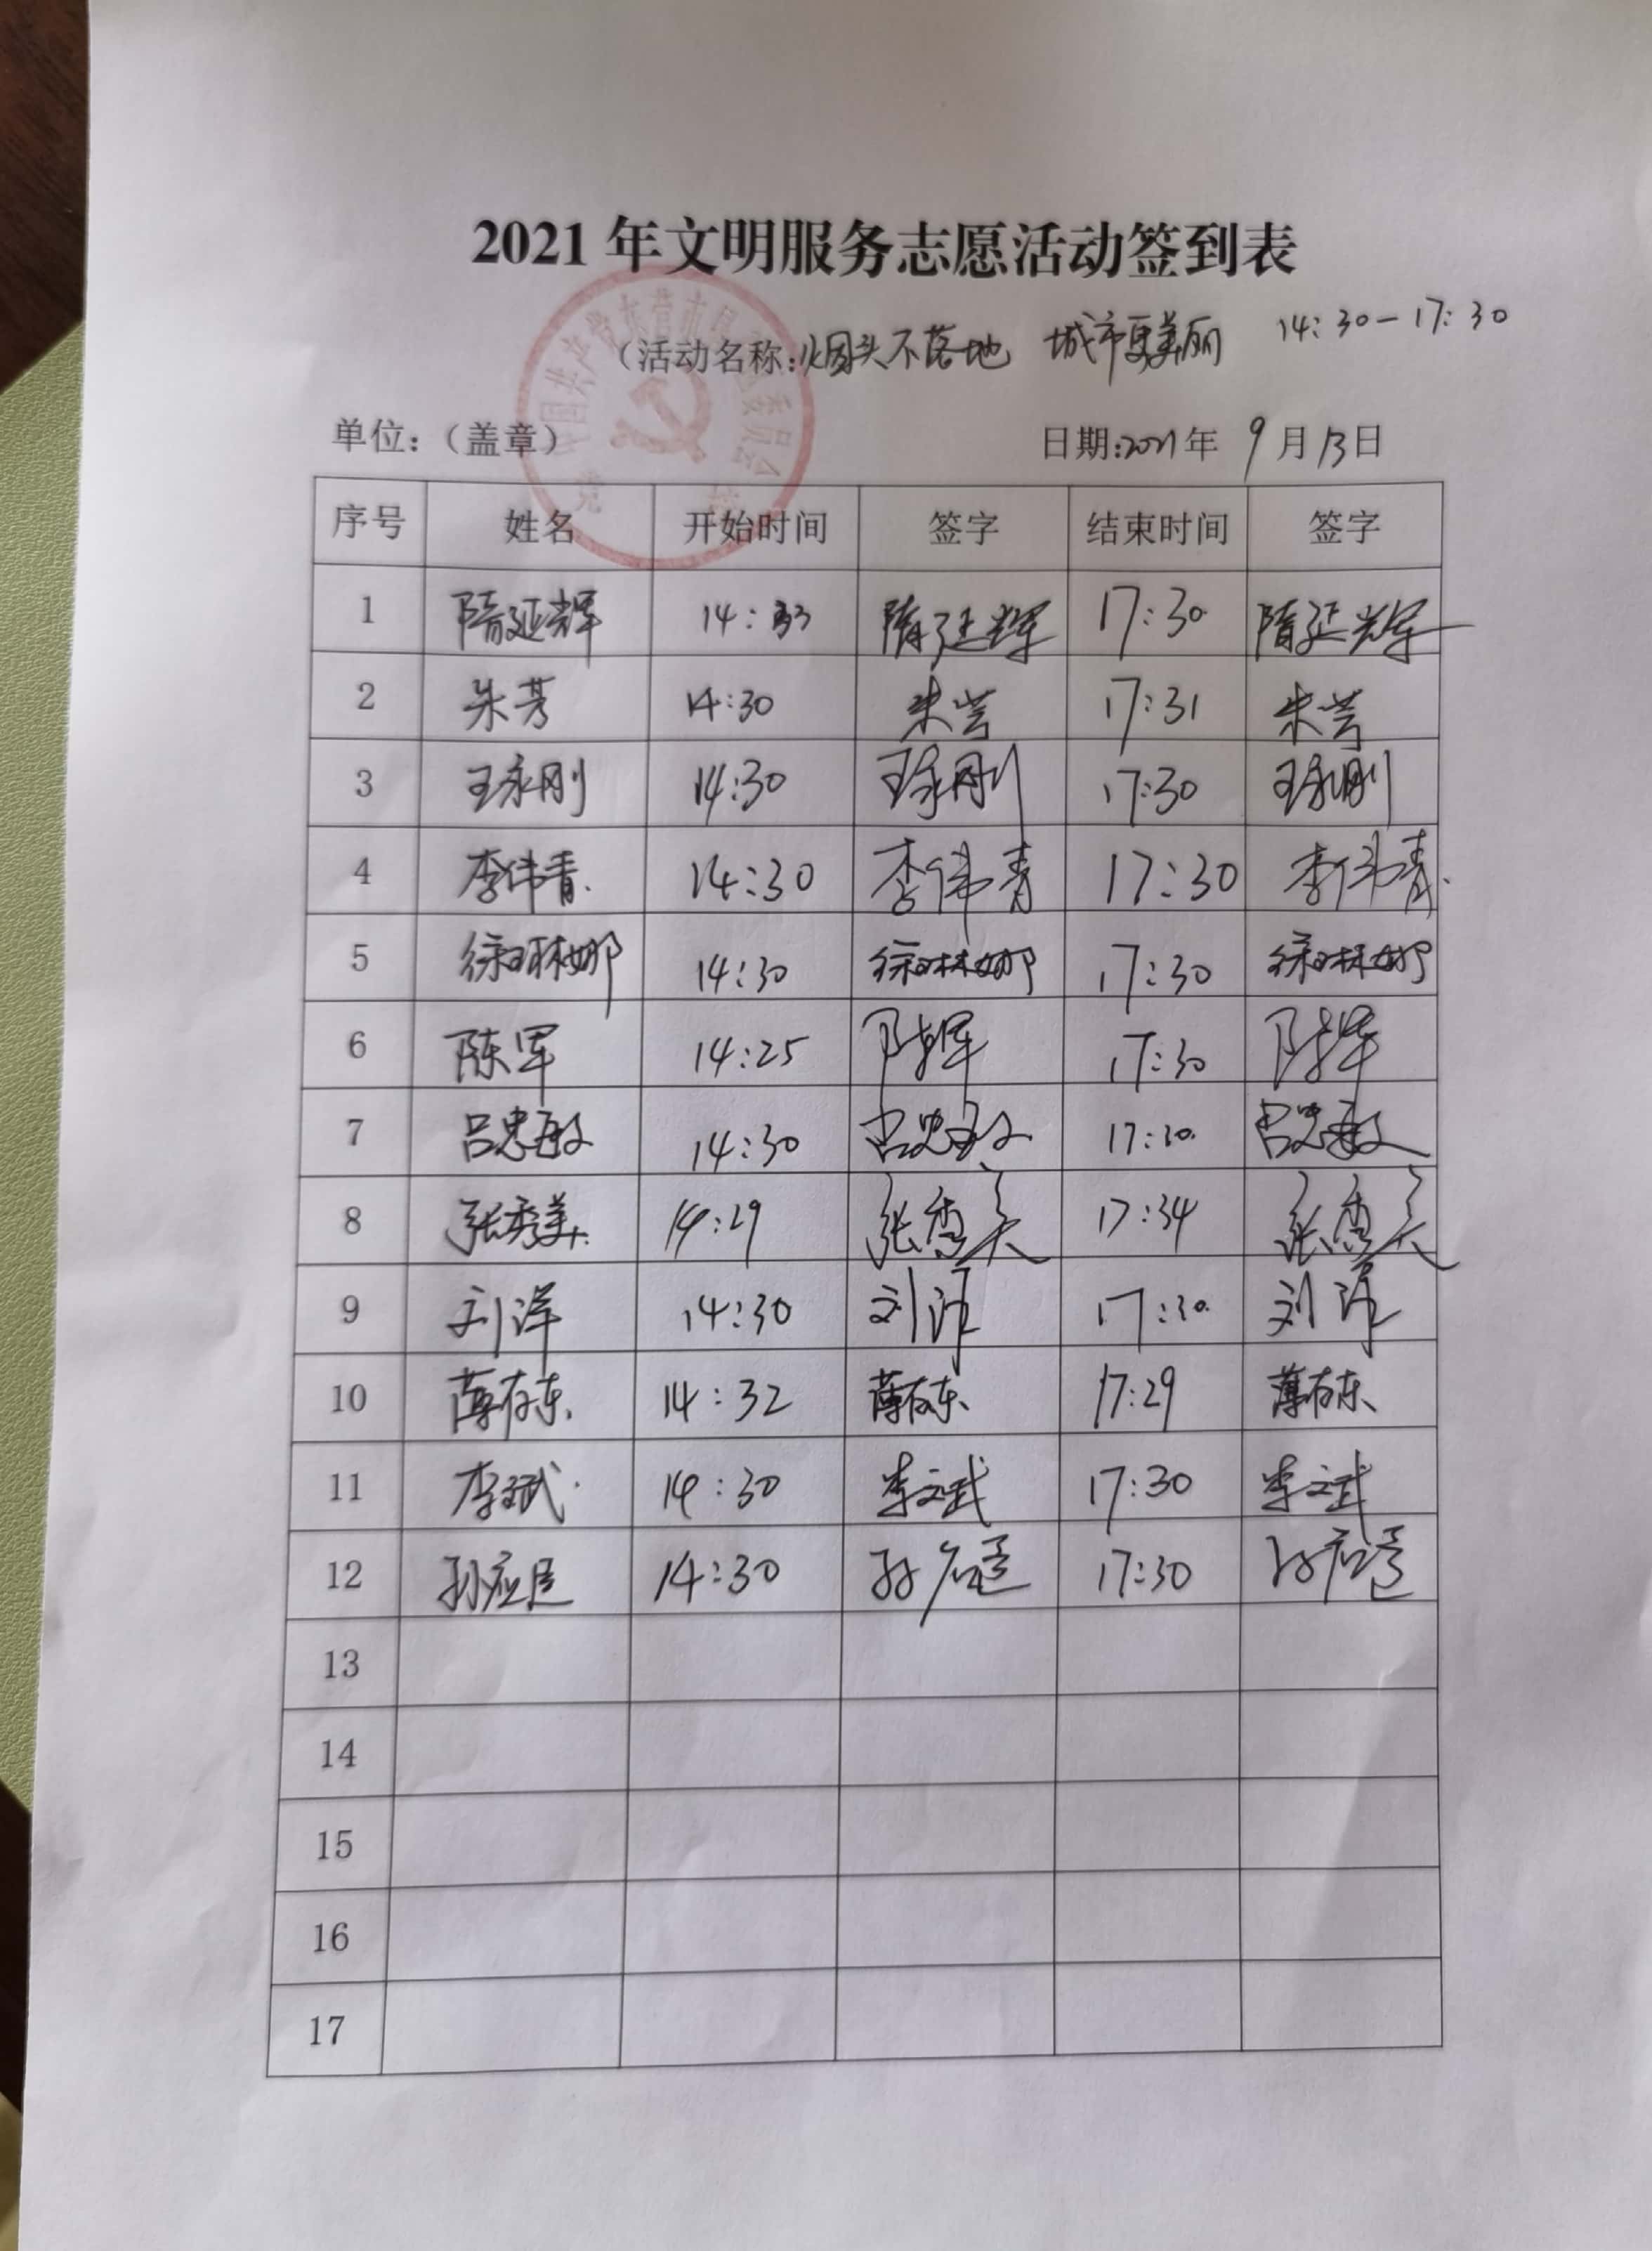 2021 年文明服务志愿活动签到表
（活动名称：烟头不落地 城市更美丽 14:30-17:30
单位：（盖章） 日期：2021年 9月13日
序号 姓名 开始时间 签字 结束时间 签字
1 隋延辉 14: 隋延辉 17:30 隋延辉
2 朱芳 14:30 朱芳 17:31 朱芳
3 王永刚 14:30 王永刚 17:30 王永刚
4 李伟青 14:30 李伟青 17:30 李伟青
5 徐琳娜 14:30 徐琳娜 17:30 徐琳娜
6 陈军 14:25 陈军 17:30 陈军
7 吕忠敏 14:30 吕忠敏 17:30 吕忠敏
8 张秀美 14:29 张秀美 17:34 张秀美
9 刘洋 14:30 刘洋 17:30 刘洋
10 薄存东 14:32 薄存东 17:29 薄存东
11 李斌 14:30 李斌 17:30 李斌
12 14:30 17:30
13
14
15
16
17